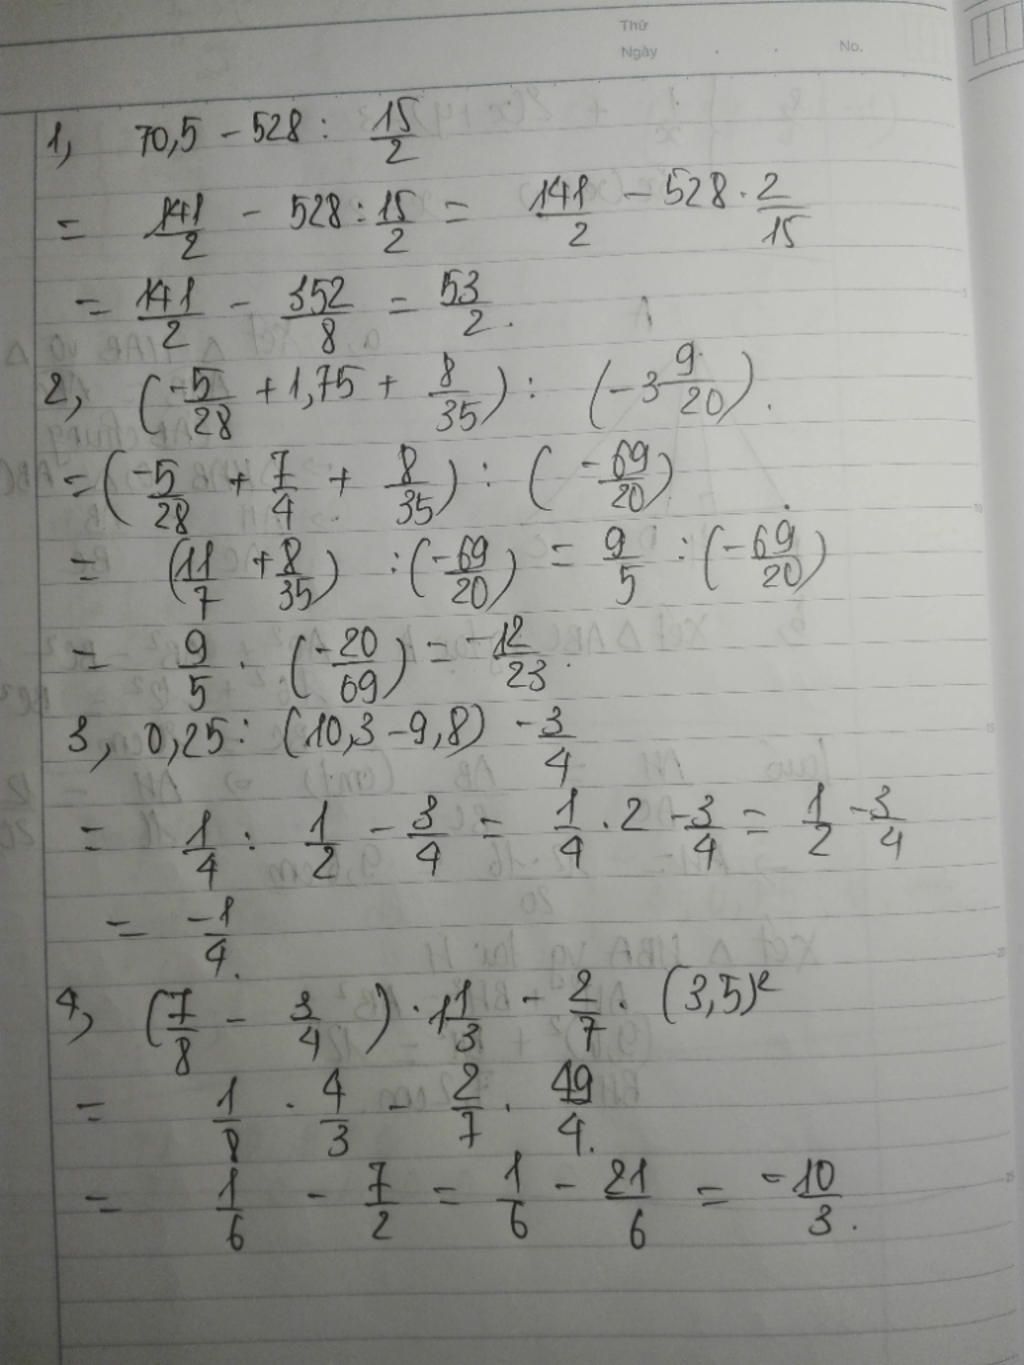 Thứ
Ngày . . No.
1, 70,5 - 528 : 15/2
= 141/2 - 528 : 15/2 = 141/2 - 528 . 2/15
= 141/2 - 352/8 = 53/2.
2, (-5/28 + 1,75 + 8/35) : (-3 9/20).
= (-5/28 + 7/4 + 8/35) : (-69/20)
= (11/7 + 8/35) : (-69/20) = 9/5 : (-69/20)
= 9/5 . (-20/69) = -12/23.
3, 0,25 : (10,3 - 9,8) - 3/4
= 1/4 : 1/2 - 3/4 = 1/4 . 2 - 3/4 = 1/2 - 3/4
= -1/4.
4, (7/8 - 3/4) . 1 1/3 - 2/7 . (3,5)²
= 1/8 . 4/3 - 2/7 . 49/4.
= 1/6 - 7/2 = 1/6 - 21/6 = -10/3.